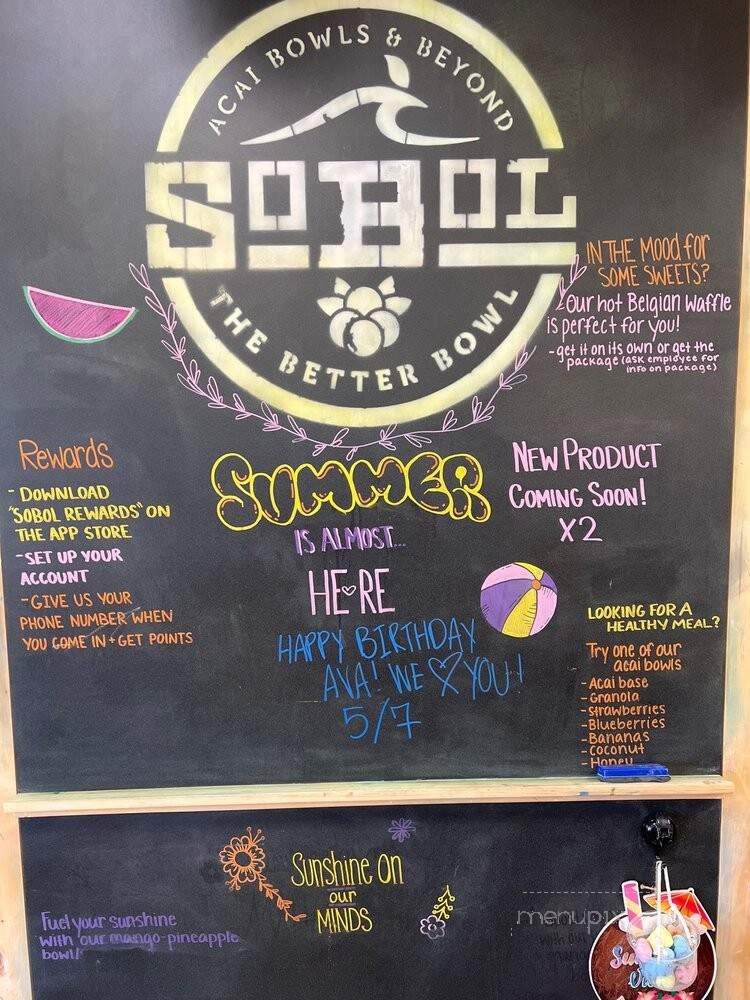 ACAI BOWLS & BEYOND
SOBOL
THE BETTER BOWL
IN THE MOOD for
SOME SWEETS?
Our hot Belgian Waffle
is perfect for you!
- get it on its own or get the
package (ask employee for
info on package)
Rewards
- DOWNLOAD
"SOBOL REWARDS" ON
THE APP STORE
- SET UP YOUR
ACCOUNT
- GIVE US YOUR
PHONE NUMBER WHEN
YOU COME IN + GET POINTS
SUMMER
IS ALMOST...
HERE
HAPPY BIRTHDAY
AVA! WE ♡ YOU!
5/7
NEW PRODUCT
COMING SOON!
X2
LOOKING FOR A
HEALTHY MEAL?
Try one of our
acai bowls
- Acai base
- Granola
- Strawberries
- Blueberries
- Bananas
- Coconut
- Honey
Sunshine On
our
MINDS
Fuel your sunshine
with our mango-pineapple
bowl!
menupix
with our